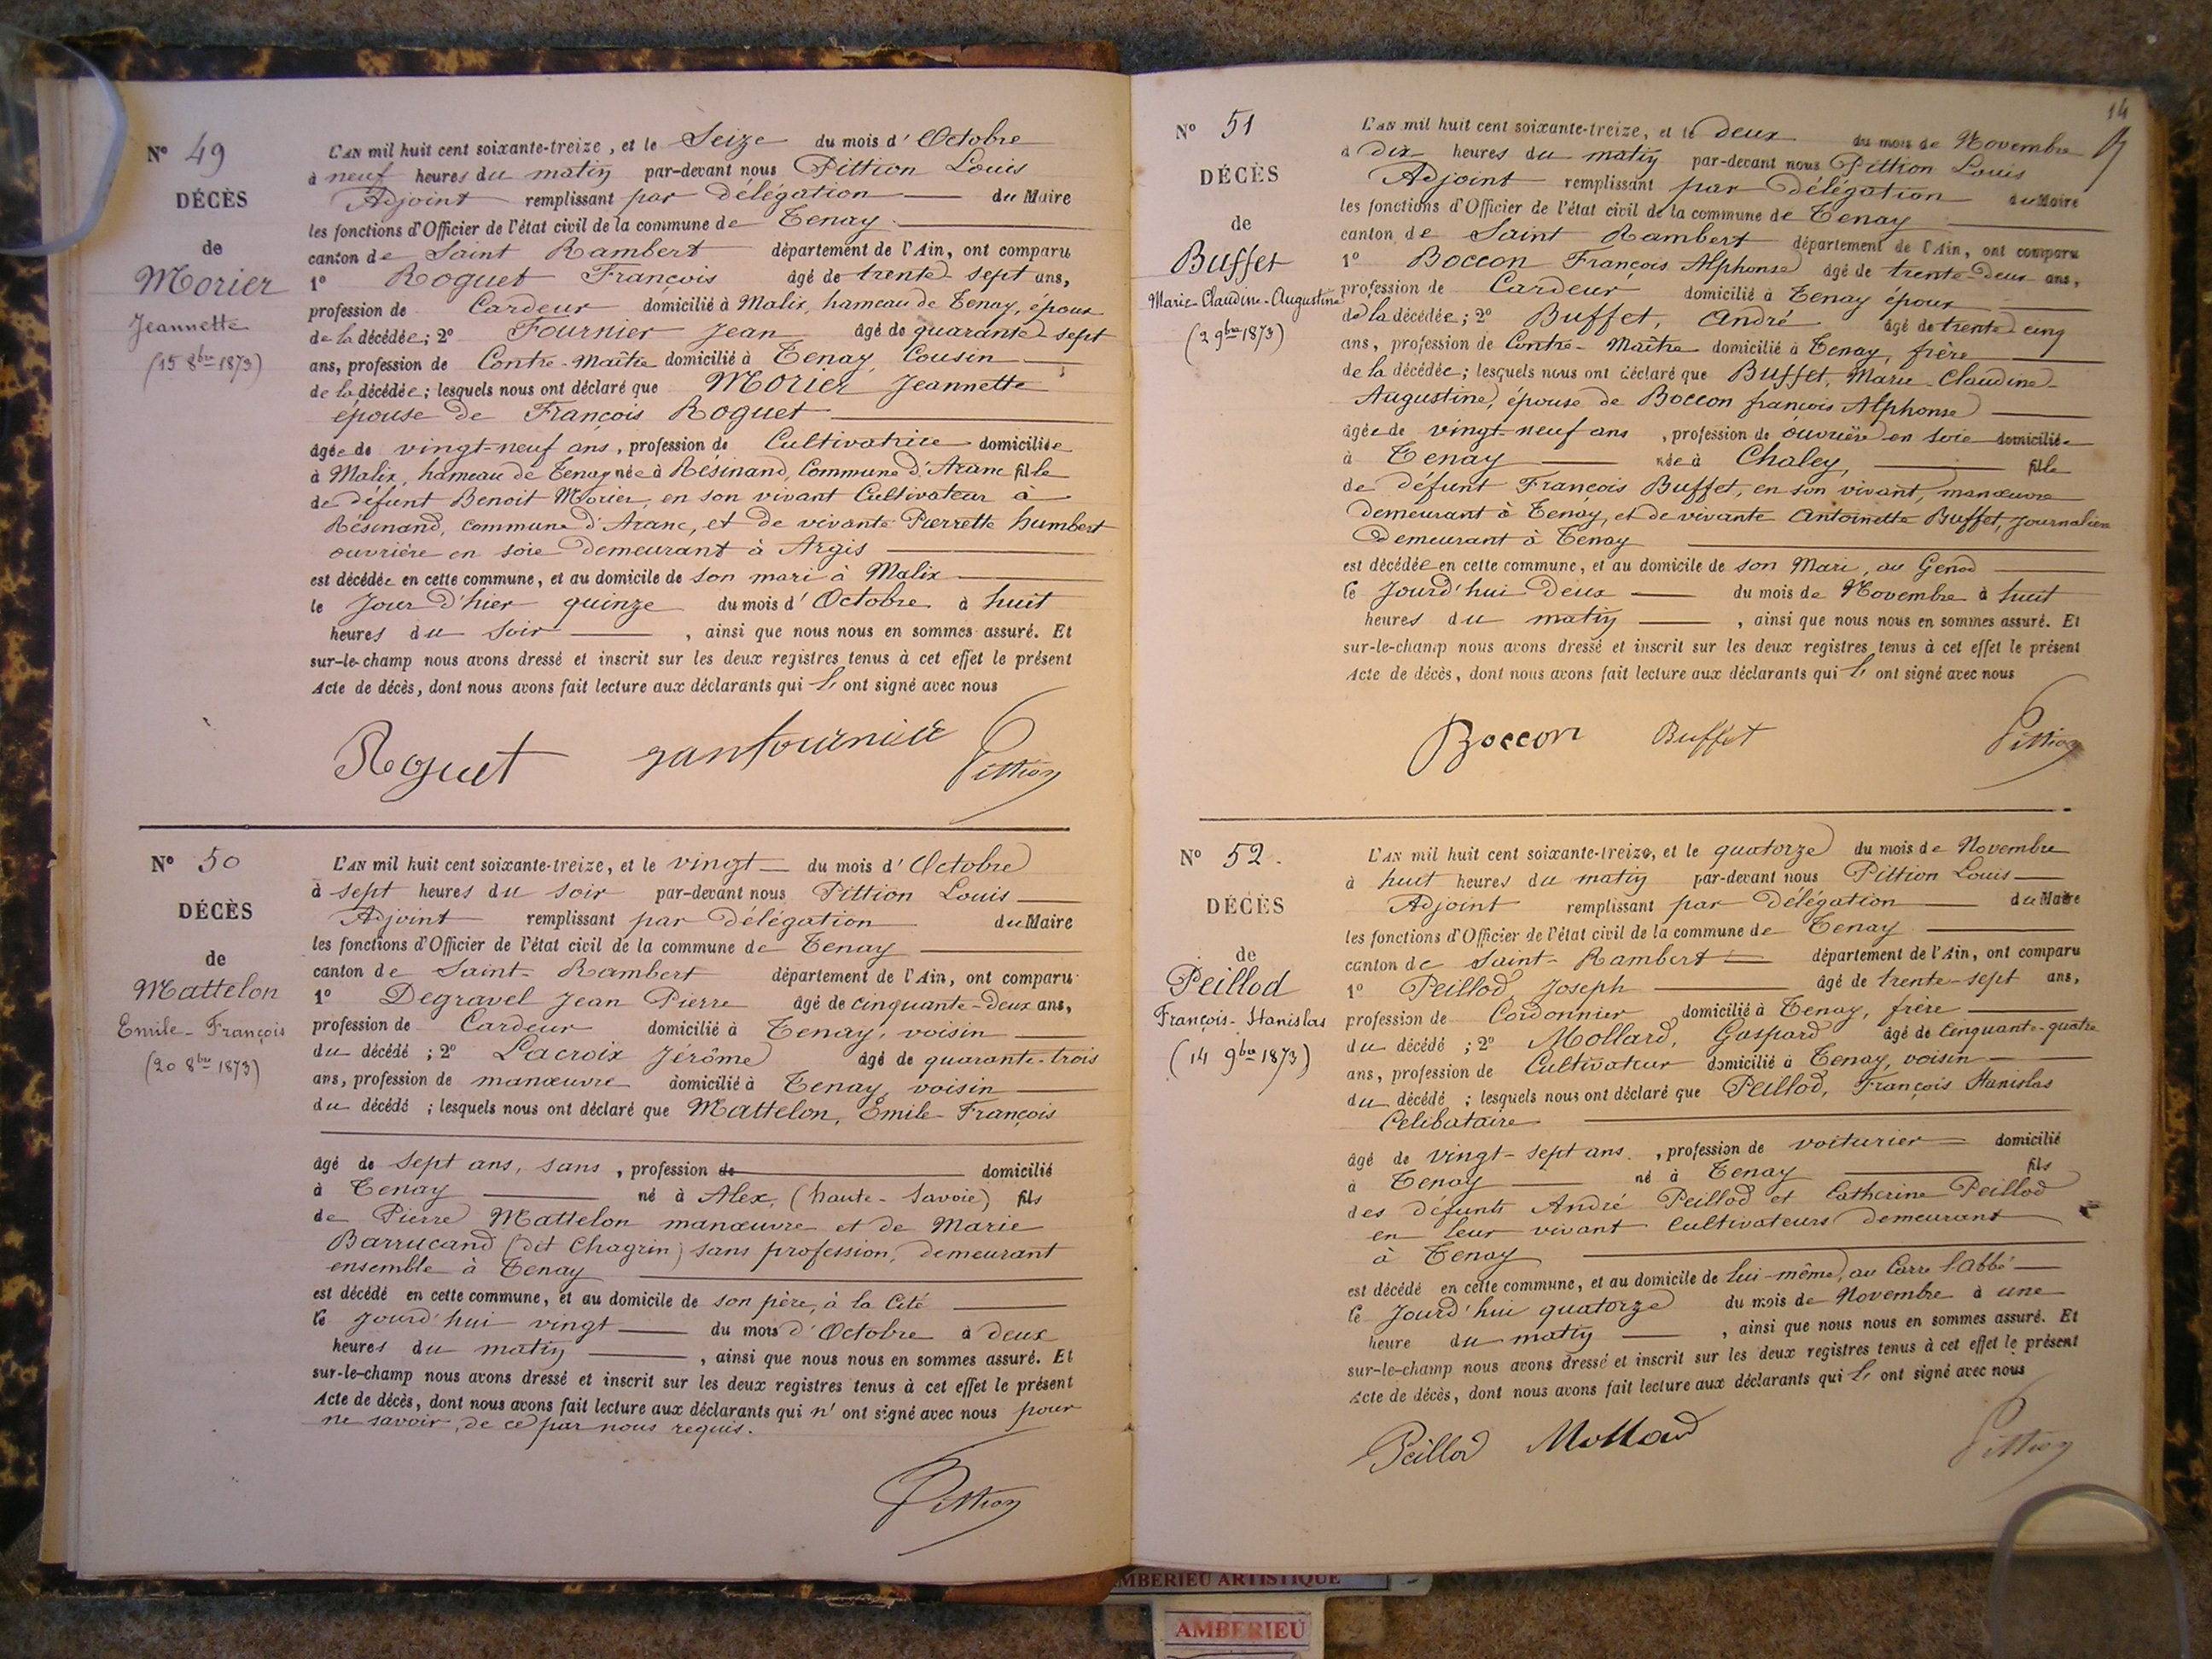 Nº 49
DÉCÈS
de
Morier
Jeannette
(15 8bre 1873)
L'AN mil huit cent soixante-treize, et le Seize du mois d'Octobre
à neuf heures du matin par-devant nous Pittion Louis
Adjoint remplissant par délégation du Maire
les fonctions d'Officier de l'état civil de la commune de Tenay
canton de Saint Rambert département de l'Ain, ont comparu
1º Roguet François âgé de trente-sept ans,
profession de Cardeur domicilié à Malix, hameau de Tenay, époux
de la décédée; 2º Fournier Jean âgé de quarante-sept
ans, profession de Contre-Maître domicilié à Tenay, Cousin
de la décédée; lesquels nous ont déclaré que Morier Jeannette
épouse de François Roguet
âgée de vingt-neuf ans, profession de Cultivatrice domiciliée
à Malix, hameau de Tenay née à Résinand, Commune d'Aranc fille
de défunt Benoit Morier, en son vivant Cultivateur à
Résinand, commune d'Aranc, et de vivante Pierrette humbert
ouvrière en soie demeurant à Argis
est décédée en cette commune, et au domicile de son mari à Malix
le Jour d'hier quinze du mois d'Octobre à huit
heures du soir, ainsi que nous nous en sommes assuré. Et
sur-le-champ nous avons dressé et inscrit sur les deux registres tenus à cet effet le présent
Acte de décès, dont nous avons fait lecture aux déclarants qui ont signé avec nous
Roguet janfournier Pittion
Nº 50
DÉCÈS
de
Mattelon
Emile-François
(20 8bre 1873)
L'AN mil huit cent soixante-treize, et le vingt du mois d'Octobre
à sept heures du soir par-devant nous Pittion Louis
Adjoint remplissant par délégation du Maire
les fonctions d'Officier de l'état civil de la commune de Tenay
canton de Saint-Rambert département de l'Ain, ont comparu
1º Degravel Jean Pierre âgé de cinquante-deux ans,
profession de Cardeur domicilié à Tenay, voisin
du décédé; 2º Lacroix Jérôme âgé de quarante-trois
ans, profession de manœuvre domicilié à Tenay, voisin
du décédé; lesquels nous ont déclaré que Mattelon, Emile-François
âgé de Sept ans, sans, profession de domicilié
à Tenay né à Alex, (haute-Savoie) fils
de Pierre Mattelon manœuvre et de Marie
Barrucand (dit Chagrin) sans profession, demeurant
ensemble à Tenay
est décédé en cette commune, et au domicile de son père, à la Cité
le jourd'hui vingt du mois d'Octobre à deux
heures du matin, ainsi que nous nous en sommes assuré. Et
sur-le-champ nous avons dressé et inscrit sur les deux registres tenus à cet effet le présent
Acte de décès, dont nous avons fait lecture aux déclarants qui n'ont signé avec nous pour
ne savoir, de ce par nous requis.
Pittion
14
Nº 51
DÉCÈS
de
Buffet
Marie-Claudine-Augustine
(2 9bre 1873)
L'AN mil huit cent soixante-treize, et le deux du mois de Novembre
à dix heures du matin par-devant nous Pittion Louis
Adjoint remplissant par délégation du Maire
les fonctions d'Officier de l'état civil de la commune de Tenay
canton de Saint Rambert département de l'Ain, ont comparu
1º Boccon François Alphonse âgé de trente-deux ans,
profession de Cardeur domicilié à Tenay époux
de la décédée; 2º Buffet, André âgé de trente-cinq
ans, profession de Contre-Maître domicilié à Tenay, frère
de la décédée; lesquels nous ont déclaré que Buffet, Marie-Claudine-
Augustine, épouse de Boccon françois Alphonse
âgée de vingt-neuf ans, profession de ouvrière en soie domiciliée
à Tenay née à Chaley, fille
de défunt François Buffet, en son vivant, manœuvre
demeurant à Tenay, et de vivante Antoinette Buffet, Journalière
demeurant à Tenay
est décédée en cette commune, et au domicile de son Mari, au Genod
le Jourd'hui deux du mois de Novembre à huit
heures du matin, ainsi que nous nous en sommes assuré. Et
sur-le-champ nous avons dressé et inscrit sur les deux registres tenus à cet effet le présent
Acte de décès, dont nous avons fait lecture aux déclarants qui ont signé avec nous
Boccon Buffet Pittion
Nº 52.
DÉCÈS
de
Peillod
François-Stanislas
(14 9bre 1873)
L'AN mil huit cent soixante-treize, et le quatorze du mois de Novembre
à huit heures du matin par-devant nous Pittion Louis
Adjoint remplissant par délégation du Maire
les fonctions d'Officier de l'état civil de la commune de Tenay
canton de Saint-Rambert département de l'Ain, ont comparu
1º Peillod Joseph âgé de trente-sept ans,
profession de Cordonnier domicilié à Tenay, frère
du décédé; 2º Mollard, Gaspard âgé de Cinquante-quatre
ans, profession de Cultivateur domicilié à Tenay, voisin
du décédé; lesquels nous ont déclaré que Peillod, François Stanislas
Celibataire
âgé de vingt-sept ans., profession de voiturier domicilié
à Tenay né à Tenay fils
des défunts André Peillod et Catherine Peillod
en leur vivant cultivateurs demeurant
à Tenay
est décédé en cette commune, et au domicile de lui-même, au Carre l'Abbé
le Jourd'hui quatorze du mois de Novembre à une
heure du matin, ainsi que nous nous en sommes assuré. Et
sur-le-champ nous avons dressé et inscrit sur les deux registres tenus à cet effet le présent
Acte de décès, dont nous avons fait lecture aux déclarants qui ont signé avec nous
Peillod Mollard Pittion
AMBERIEU ARTISTIQUE
AMBERIEU